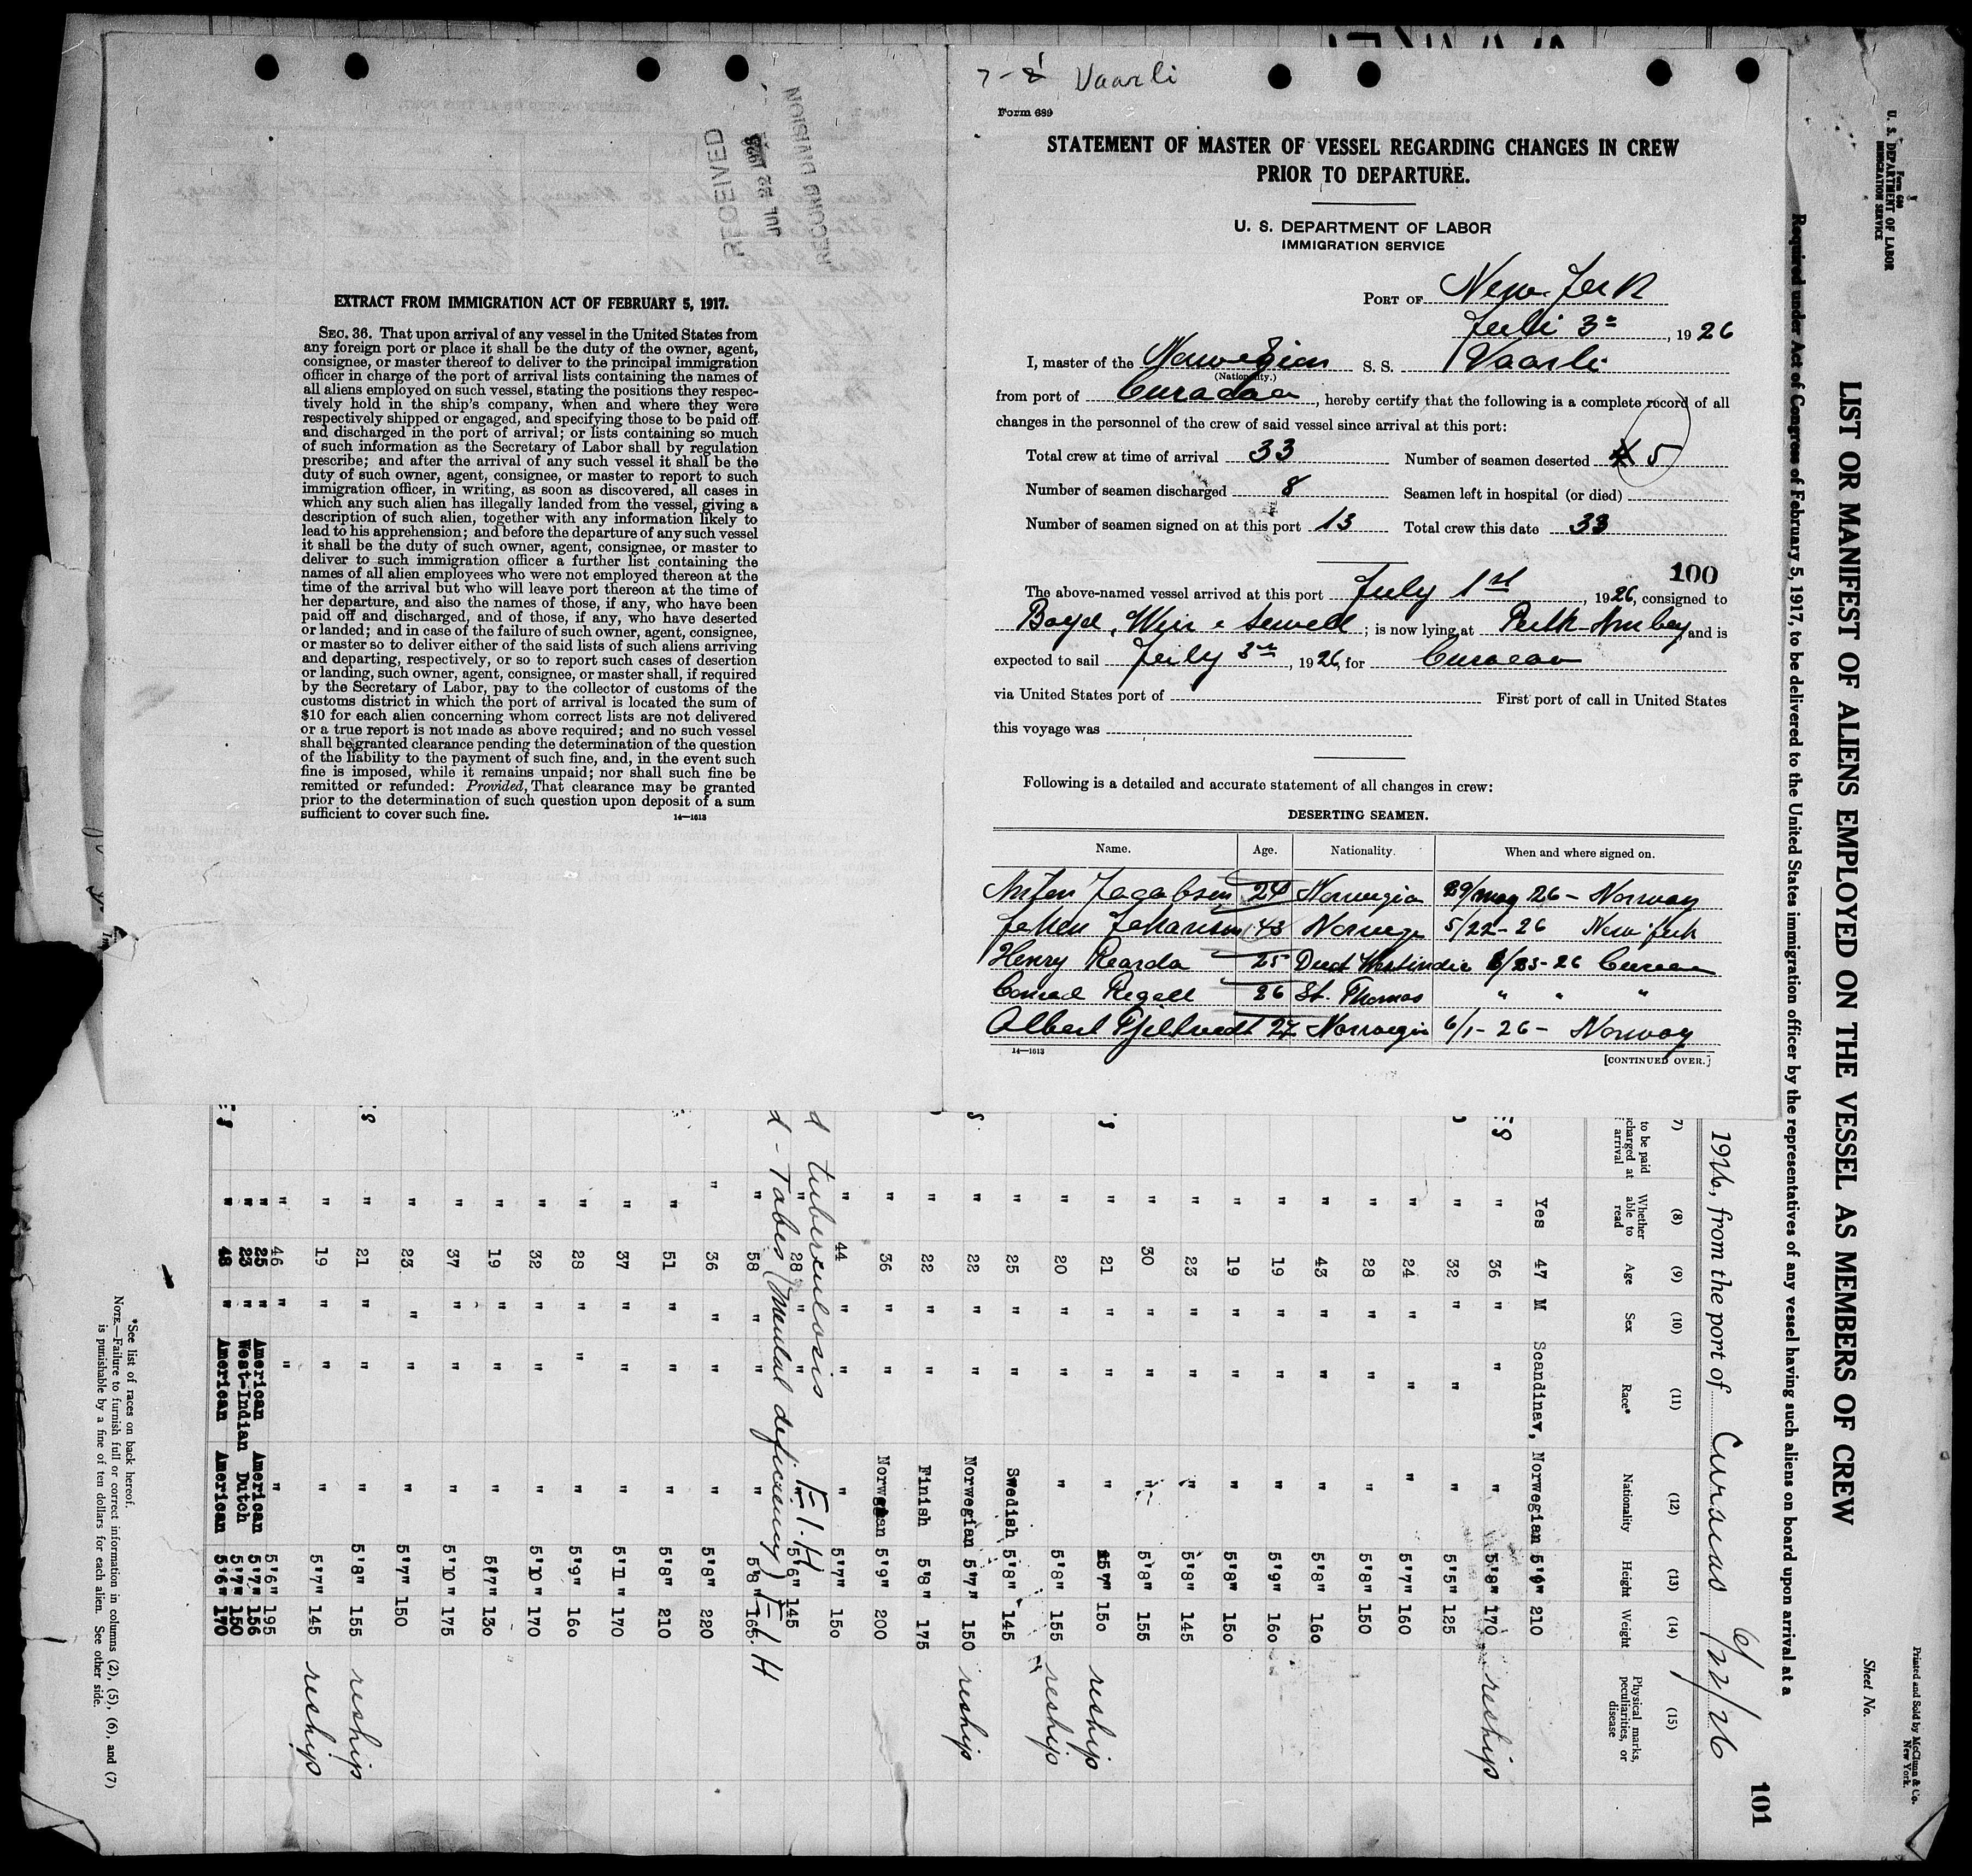 EXTRACT FROM IMMIGRATION ACT OF FEBRUARY 5, 1917.
SEC. 36. That upon arrival of any vessel in the United States from
any foreign port or place it shall be the duty of the owner, agent,
consignee, or master thereof to deliver to the principal immigration
officer in charge of the port of arrival lists containing the names of
all aliens employed on such vessel, stating the positions they respec-
tively hold in the ship's company, when and where they were
respectively shipped or engaged, and specifying those to be paid off
and discharged in the port of arrival; or lists containing so much
of such information as the Secretary of Labor shall by regulation
prescribe; and after the arrival of any such vessel it shall be the
duty of such owner, agent, consignee, or master to report to such
immigration officer, in writing, as soon as discovered, all cases in
which any such alien has illegally landed from the vessel, giving a
description of such alien, together with any information likely to
lead to his apprehension; and before the departure of any such vessel
it shall be the duty of such owner, agent, consignee, or master to
deliver to such immigration officer a further list containing the
names of all alien employees who were not employed thereon at the
time of the arrival but who will leave port thereon at the time of
her departure, and also the names of those, if any, who have been
paid off and discharged, and of those, if any, who have deserted
or landed; and in case of the failure of such owner, agent, consignee,
or master so to deliver either of the said lists of such aliens arriving
and departing, respectively, or so to report such cases of desertion
or landing, such owner, agent, consignee, or master shall, if required
by the Secretary of Labor, pay to the collector of customs of the
customs district in which the port of arrival is located the sum of
$10 for each alien concerning whom correct lists are not delivered
or a true report is not made as above required; and no such vessel
shall be granted clearance pending the determination of the question
of the liability to the payment of such fine, and, in the event such
fine is imposed, while it remains unpaid; nor shall such fine be
remitted or refunded: Provided, That clearance may be granted
prior to the determination of such question upon deposit of a sum
sufficient to cover such fine.
14—1613
RECEIVED
JUL 22 1926
RECORD DIVISION
7-8 Vaarli
Form 689
STATEMENT OF MASTER OF VESSEL REGARDING CHANGES IN CREW
PRIOR TO DEPARTURE.
U. S. DEPARTMENT OF LABOR
IMMIGRATION SERVICE
PORT OF New Jerk
Juli 3, 1926
I, master of the Norwegian S. S. Vaarli
(Nationality.)
from port of Curacao, hereby certify that the following is a complete record of all
changes in the personnel of the crew of said vessel since arrival at this port:
Total crew at time of arrival 33 Number of seamen deserted 5
Number of seamen discharged 8 Seamen left in hospital (or died)
Number of seamen signed on at this port 13 Total crew this date 33
100
The above-named vessel arrived at this port July 1st, 1926, consigned to
Boyd, Weir & Sewell; is now lying at Perth-Ambey and is
expected to sail July 3rd, 1926, for Curacao
via United States port of First port of call in United States
this voyage was
Following is a detailed and accurate statement of all changes in crew:
DESERTING SEAMEN.
Name. Age. Nationality. When and where signed on.
Jacobsen 24 Norwegia 29/may 26 - Norway
Johansen 43 Norwege 5/22-26 New Jerk
Henry Rearda 25 Duct Westindie /25-26 Curacao
Conrad Regell 26 St. Thomas " " "
Albert 27 Norwegia 6/1-26 - Norway
14—1613
[CONTINUED OVER.]
U. S. DEPARTMENT OF LABOR
IMMIGRATION SERVICE
Printed and Sold by McClunn & Co.
New York.
Sheet No.
LIST OR MANIFEST OF ALIENS EMPLOYED ON THE VESSEL AS MEMBERS OF CREW
Required under Act of Congress of February 5, 1917, to be delivered to the United States immigration officer by the representatives of any vessel having such aliens on board upon arrival at a
101
1926, from the port of Curacao 6/22/26
7) (8) (9) (10) (11) (12) (13) (14) (15)
to be paid charged at arrival Whether able to read Age Sex Race* Nationality Height Weight Physical marks, peculiarities, or disease
Yes 47 M Scandinav, Norwegian 5'9" 210
" 36 " " " 5'8" 170 reship
" 32 " " " 5'5" 125
" 24 " " " 5'7" 160
" 28 " " " 5'8" 150
" 43 " " " 5'8" 160
" 19 " " " 5'9" 160
" 19 " " " 5'8" 150
" 23 " " " 5'8" 145
" 30 " " " 5'8" 155
" 21 " " " 5'7" 150 reship
" 20 " " " 5'8" 155 reship
" 25 " " Swedish 5'8" 145
" 22 " " Norwegian 5'7" 150 reship
" 22 " " Finish 5'8" 175
" 36 " " Norwegian 5'9" 200
" 44 " " " 5'7" 150
d tuberculosis E.I.H
" 28 " " " 5'6" 145
d - Tabes (Mental deficiency) E.I.H
" 58 " " " 5'8" 165
" 36 " " " 5'8" 220
" 51 " " " 5'8" 210
" 37 " " " 5'11" 170
" 28 " " " 5'9" 160
" 32 " " " 5'10" 170
" 19 " " " 5'7" 130
" 37 " " " 5'10" 175
" 23 " " " 5'7" 150
" 21 " " " 5'8" 155 reship
" 19 " " " 5'7" 145 reship
" 46 " " " 5'6" 195
" 25 " American American 5'7" 156
" 23 " West-Indian Dutch 5'7" 150
" 48 " American American 5'6" 170
*See list of races on back hereof.
NOTE.—Failure to furnish full or correct information in columns (2), (5), (6), and (7)
is punishable by a fine of ten dollars for each alien. See other side.